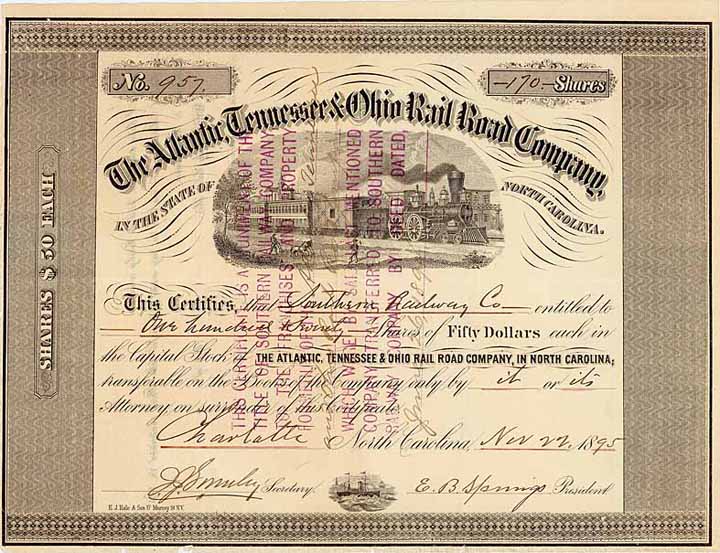 No. 957.
—170— Shares
The Atlantic, Tennessee & Ohio Rail Road Company,
IN THE STATE OF
NORTH CAROLINA.
SHARES $50 EACH
This Certifies, that Southern Railway Co entitled to
One hundred Seventy Shares of Fifty Dollars each in
the Capital Stock of THE ATLANTIC, TENNESSEE & OHIO RAIL ROAD COMPANY, IN NORTH CAROLINA;
transferable on the Books of the Company only by it or its
Attorney on surrender of this Certificate.
Charlotte North Carolina, Nov 22, 1895
Secretary.
E. B. Springs President
E. J. Hale & Son 17 Murray St N.Y.
THIS CERTIFICATE IS A MUNIMENT OF THE
TITLE OF SOUTHERN RAILWAY COMPANY
TO THE FRANCHISES AND PROPERTY
WHICH WERE BY SAID LAST MENTIONED
COMPANY TRANSFERRED TO SOUTHERN
RAILWAY COMPANY BY DEED DATED,